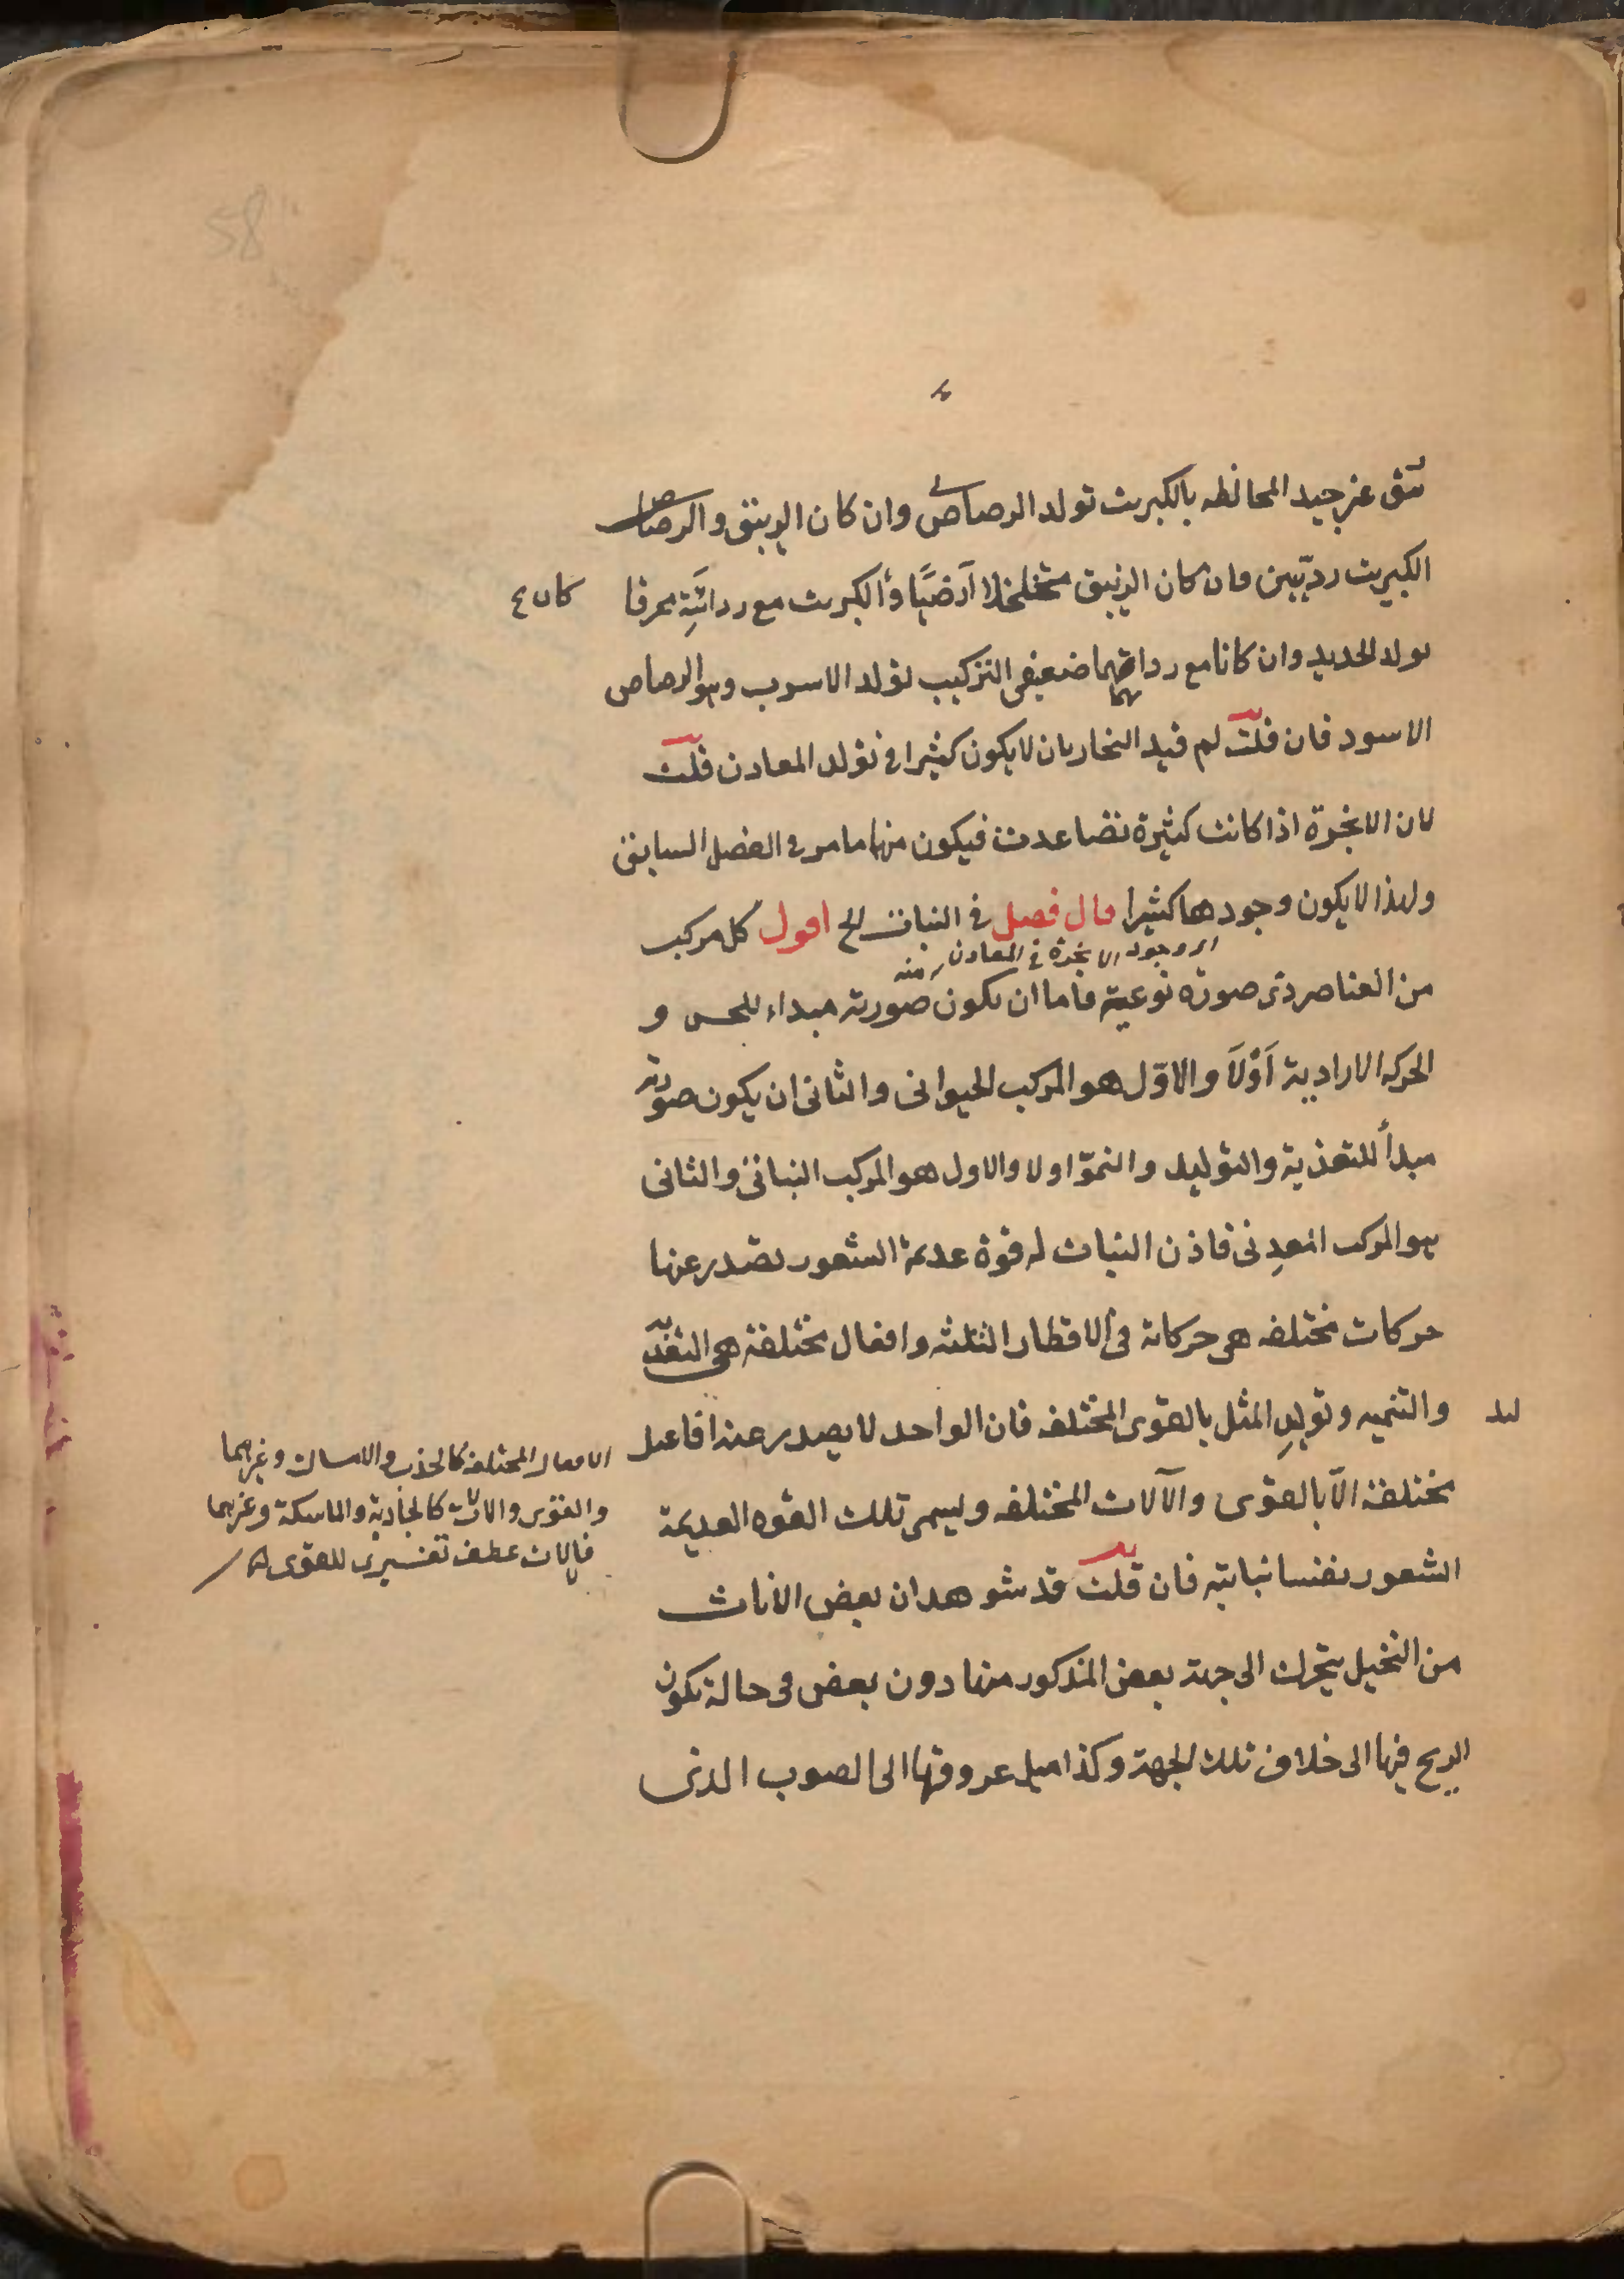 58
نتق غير جيد المخالطه بالكبريت تولد الرصاص وان كان الزيبق والرصاص
الكبريت رديّين فان كان الزيبق متخلخلا أرضيًّا والكبريت مع ردائتِه محرقا
تولد الحديد وان كانا مع رداتهما ضعيفى التركيب تولد الاسرب وهو الرصاص
الاسود فان قلت لم قيد البخار بان لا يكون كثيرا فى تولد المعادن قلت
لان الابخرة اذا كانت كثيرة تصاعدت فيكون منها ما مر فى الفصل السابق
ولهذا لا يكون وجودها كثيرا قال فصل فى النبات الخ اقول كل مركب
اى وجود الابخرة فى المعادن منه
من العناصر ذى صورة نوعية فاما ان يكون صورته مبداء للحس و
الحركه الارادية أوْلَا والاوّل هو المركب الحيوانى والثانى ان يكون صورته
مبدأ للتغذية والتوليد والنموّ اولا والاول هو المركب النباتى والثانى
هو المركب المعدِنى فاذن النبات له قوة عديمة الشعور تصدر عنها
حركات مختلفه هى حركاته فى الاقطار الثلثه وافعال مختلفة هى التغذية
والتنميه وتوليدِ المثل بالقوى المختلفه فان الواحد لا يصدر عنه افاعيل
مختلفة الّا بالقوى والآلات المختلفه ويسمى تلك القوه العديمة
الشعور نفسا نباتيه فان قلت قد شوهد ان بعض الاناث
من النخيل يتحرك الى جهة بعض المذكور منها دون بعض فى حالة تكون
الريح فيها الى خلاف تلك الجهة وكذا ميل عروقها الى الصوب الذى
كان
الافعال المختلفه كالجذب والامساك وغيرهما
والقوى والالات كالجاذبة والماسكة وغيرهما
فالالات عطف تفسيرى للقوى